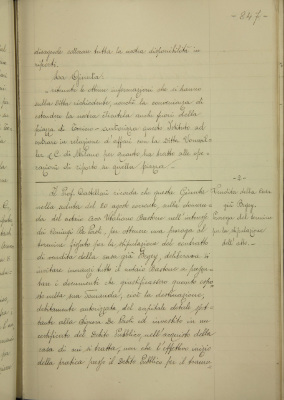 - 647 -
disequale attesa tutta la nostra disponibilità in
riporti.
La Giunta
ritenute le ottime informazioni che si hanno
sulla Ditta richiedente, nonchè la convenienza di
estendere la nostra clientela anche fuori della
piazza di Torino - autorizza questo Istituto ad
entrare in relazione d'affari con la Ditta
& C. di Milano per quanto ha tratto alle ope-
razioni di riporto in quella piazza.
- 2 -
Il Prof. Castellari ricorda che questa Giunta
nella seduta del 20 agosto scorso, sulla doman-
da del notaio Avv. Mastene nell'interesse
dei Coniugi De Paoli, per ottenere una proroga al
termine fissato per la stipulazione del contratto
di vendita della casa già Bogey, deliberava
invitare innanzi tutto il notaio Mastene a presen-
tare i documenti che giustificassero quanto espo-
de nella sua domanda, cioè la destinazione,
debitamente autorizzata, del capitale dotale spet-
tante alla Signora De Paoli ed investito in un
certificato del Debito Pubblico, nell'acquisto della
casa di cui si tratta, non che l'effettivo inizio
della pratica presso il Debito Pubblico per il tramu-
Vendita della casa
già Bogey.
Proroga del termine
per la stipulazione
dell'atto.